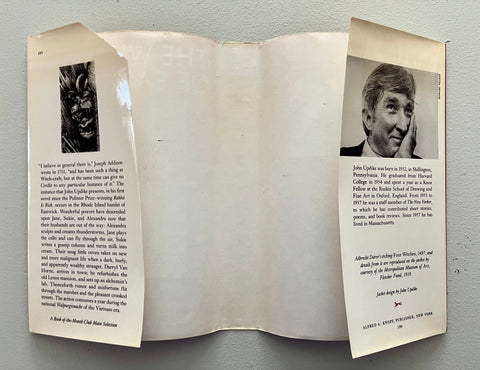 FPT
"I believe in general there is," Joseph Addison
wrote in 1711, "and has been such a thing as
Witch-craft; but at the same time can give no
Credit to any particular Instance of it." The
instance that John Updike presents, in his first
novel since the Pulitzer Prize–winning Rabbit
Is Rich, occurs in the Rhode Island hamlet of
Eastwick. Wonderful powers have descended
upon Jane, Sukie, and Alexandra now that
their husbands are out of the way. Alexandra
sculpts and creates thunderstorms, Jane plays
the cello and can fly through the air, Sukie
writes a gossip column and turns milk into
cream. Their snug little coven takes on new
and more malignant life when a dark, burly,
and apparently wealthy stranger, Darryl Van
Horne, arrives in town; he refurbishes the
old Lenox mansion, and sets up an alchemist's
lab. Thenceforth rumor and misfortune flit
through the marshes and the pleasant crooked
streets. The action consumes a year during the
national Walpurgisnacht of the Vietnam era.
A Book-of-the-Month Club Main Selection
THE WI
John Updike was born in 1932, in Shillington,
Pennsylvania. He graduated from Harvard
College in 1954 and spent a year as a Knox
Fellow at the Ruskin School of Drawing and
Fine Art in Oxford, England. From 1955 to
1957 he was a staff member of The New Yorker,
to which he has contributed short stories,
poems, and book reviews. Since 1957 he has
lived in Massachusetts.
Albrecht Dürer's etching Four Witches, 1497, and
details from it are reproduced on the jacket by
courtesy of the Metropolitan Museum of Art,
Fletcher Fund, 1919.
Jacket design by John Updike
ALFRED A. KNOPF, PUBLISHER, NEW YORK